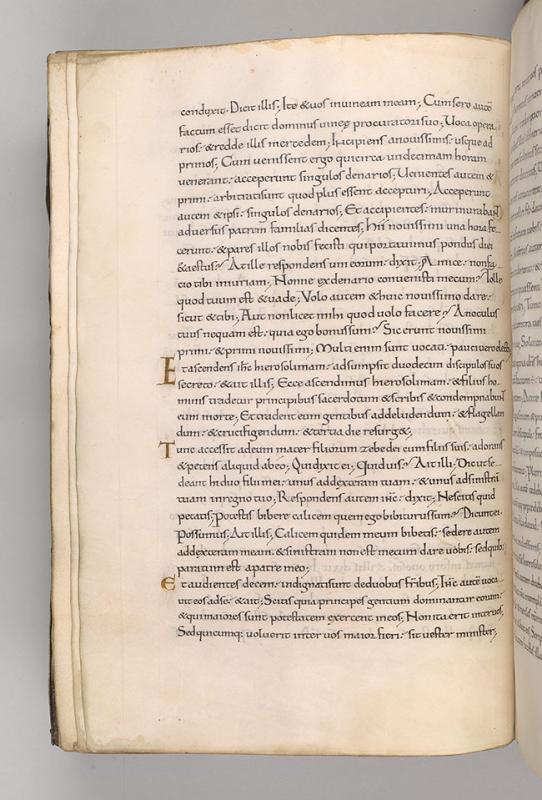 conduxit. Dicit illis; Ite &uos inuineam meam; Cum sero autē
factum ess& dicit dominus uineę procuratori suo; Uoca opera
rios. &redde illis mercedem; Incipiens anouissimis. usque ad
primos; Cum uenissent ergo qui circa undecimam horam
uenerant. acceperunt singulos denarios; Uenientes autem &
primi. arbitrati sunt quod plus essent accepturi; Acceperunt
autem &ipsi. singulos denarios; Et accipientes. murmurabant
aduersus patrem familias dicentes; Hii nouissimi una hora fe
cerunt. &pares illos nobis fecisti qui portauimus pondus diei
&aestus; At ille respondens uni eorum. dixit; Amice. non fa
cio tibi iniuriam; Nonne ex denario conuenisti mecum; Tolle
quod tuum est &uade; Uolo autem &huic nouissimo dare.
sicut &tibi; Aut non licet mihi quod uolo facere; An oculus
tuus nequam est. quia ego bonus sum; Sic erunt nouissimi
primi. &primi nouissimi; Multi enim sunt uocati. pauci uero electi;
Et ascendens ihc hierosolimam. adsumpsit duodecim discipulos suos
secreto. &ait illis; Ecce ascendimus hierosolimam. &filius ho
minis tradetur principibus sacerdotum &scribis &condempnabunt
eum morte; Et tradent eum gentibus addeludendum. &flagellan
dum. &crucifigendum. &tertia die resurg&;
Tunc accessit adeum mater filiorum zebedei cum filiis suis. adorans
&petens aliquid abeo; Qui dixit ei; Quid uis; Ait illi; Dic ut se
deant hi duo filii mei. unus addexteram tuam. &unus adsinistrā
tuam inregno tuo; Respondens autem ihc. dixit; Nescitis quid
petatis; Potestis bibere calicem quem ego bibiturus sum; Dicunt ei.
Possumus; Ait illis; Calicem quidem meum bibetis. sedere autem
addexteram meam. &sinistram non est meum dare uobis. sed quib;
paratum est apatre meo;
Et audientes decem. indignati sunt deduobus fribus; Ihc autē uoca
uit eos adse. &ait; Scitis quia principes gentium dominantur eorum.
&qui maiores sunt potestatem exercent ineos; Non ita erit inter uos;
Sed quicumq; uoluerit inter uos maior fieri. sit uester minister;